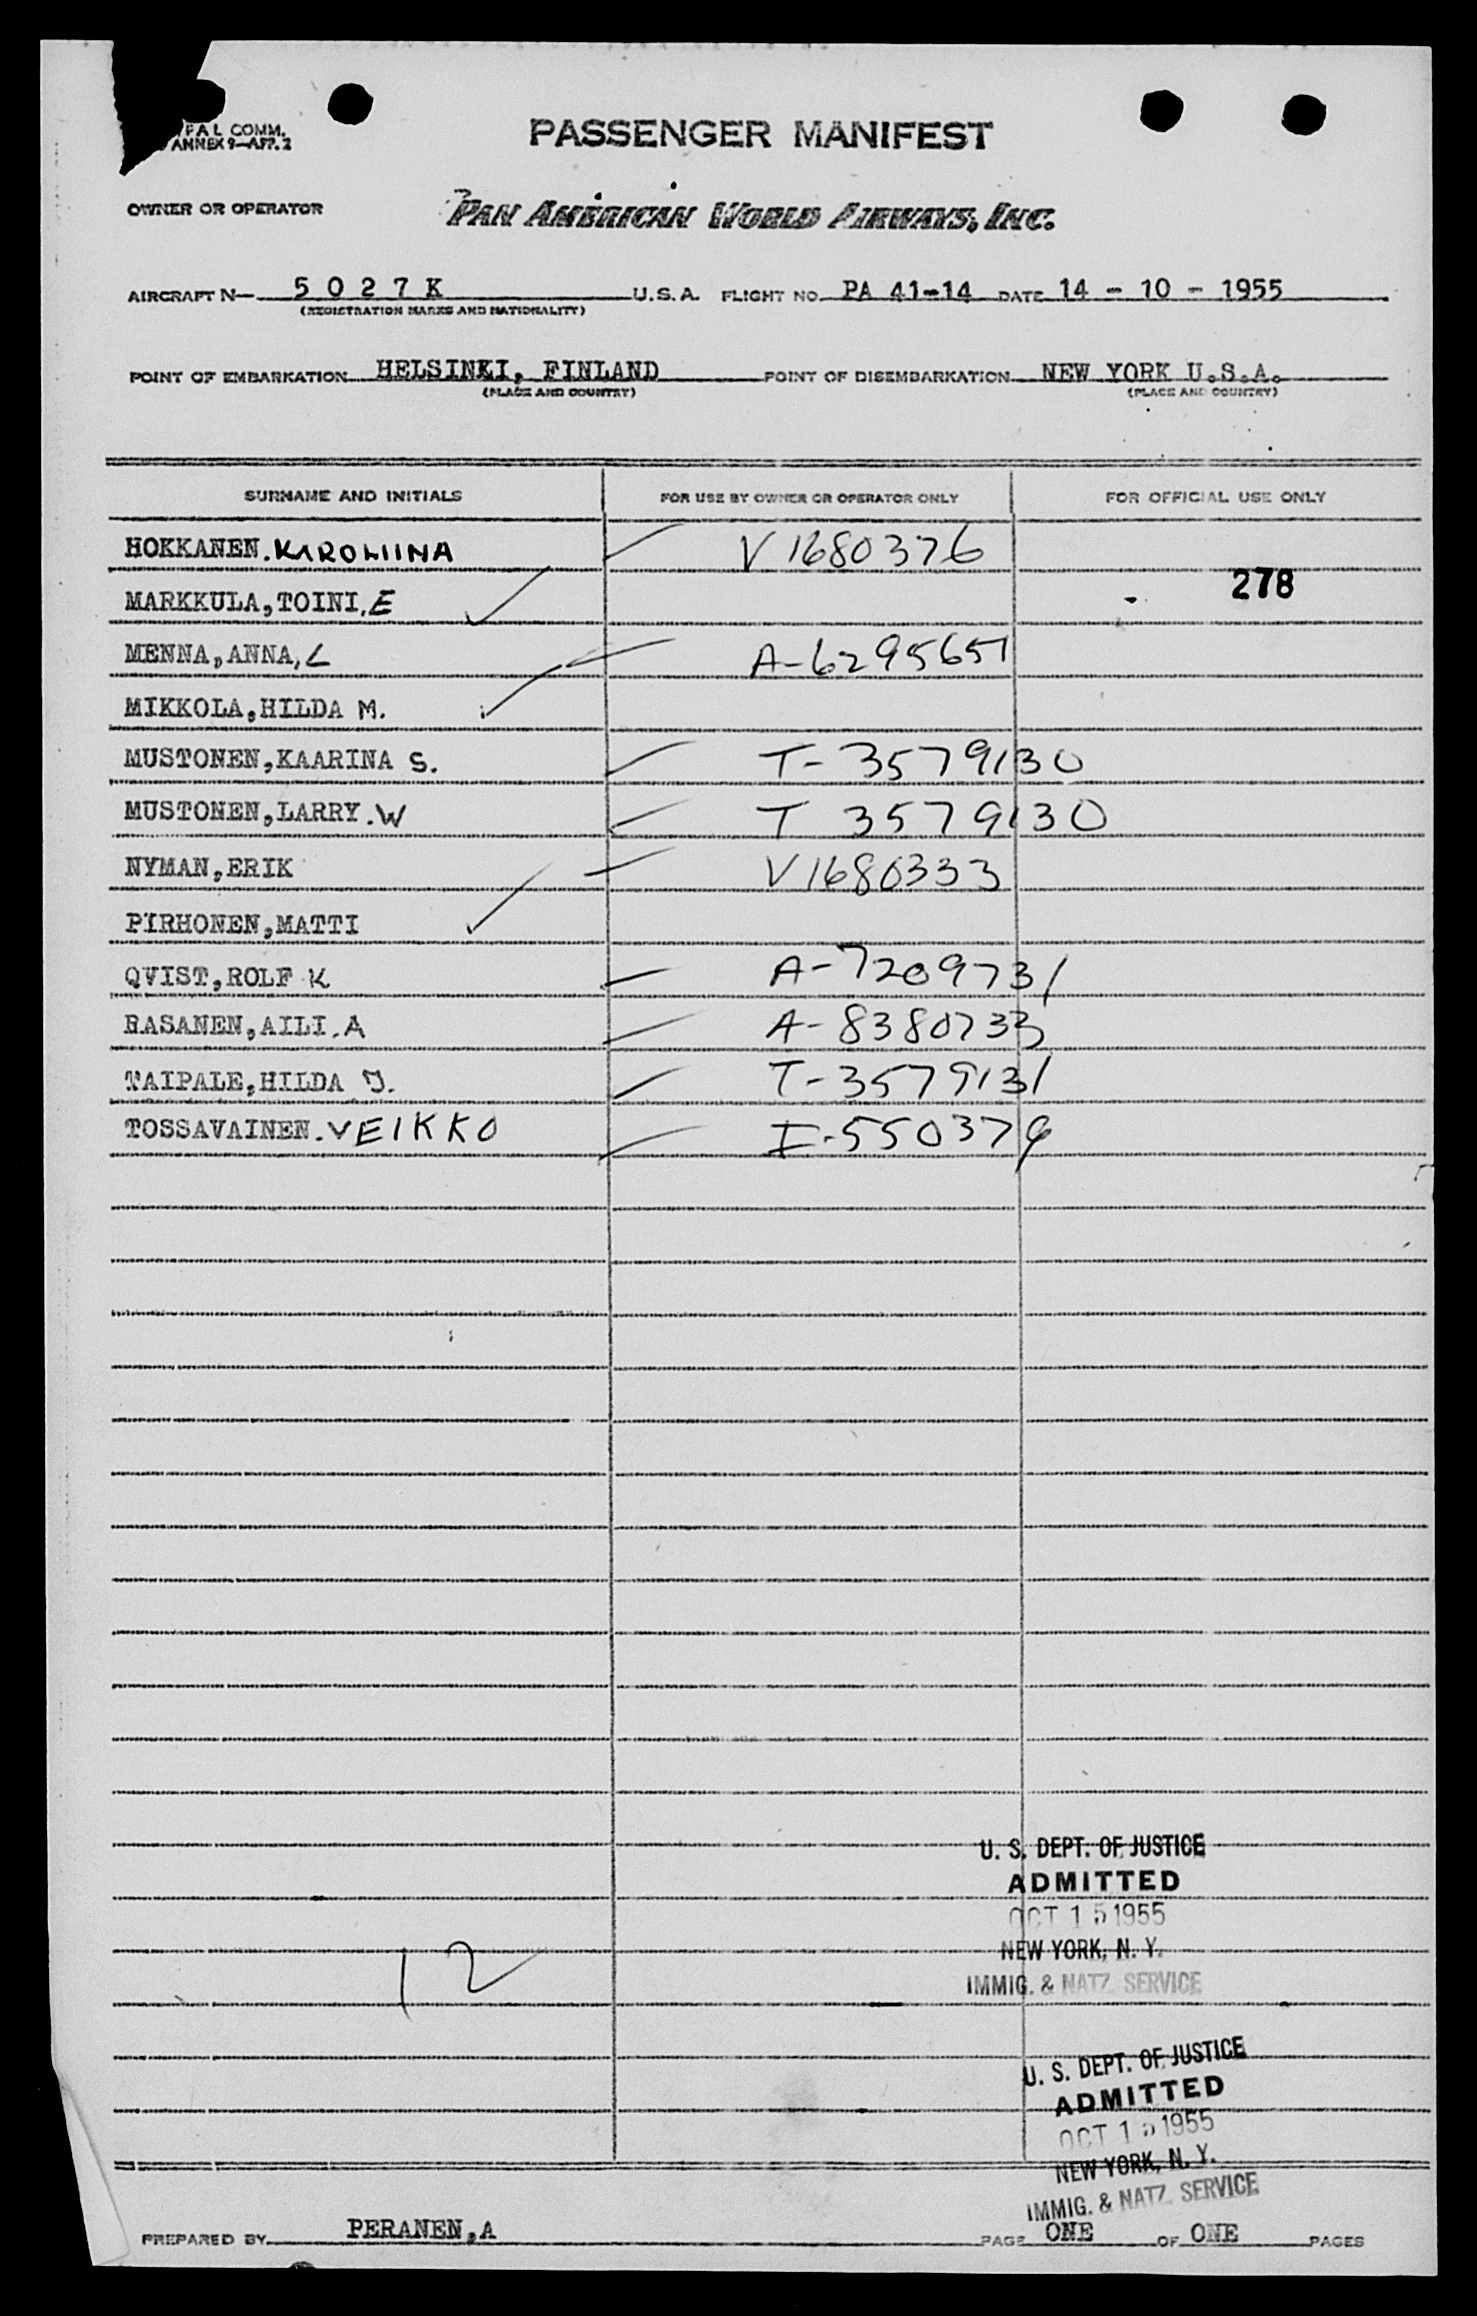 FAL COMM.
ANNEX 9-APP. 2
PASSENGER MANIFEST
OWNER OR OPERATOR PAN AMERICAN WORLD AIRWAYS, INC.
AIRCRAFT N- 5 0 2 7 K U.S.A. FLIGHT NO. PA 41-14 DATE 14 - 10 - 1955
(REGISTRATION MARKS AND NATIONALITY)
POINT OF EMBARKATION HELSINKI, FINLAND POINT OF DISEMBARKATION NEW YORK U.S.A.
(PLACE AND COUNTRY) (PLACE AND COUNTRY)
SURNAME AND INITIALS FOR USE BY OWNER OR OPERATOR ONLY FOR OFFICIAL USE ONLY
HOKKANEN. KAROLIINA V 1680376
278
MARKKULA, TOINI, E
MENNA, ANNA, L A-6295657
MIKKOLA, HILDA M.
MUSTONEN, KAARINA S. T- 3579130
MUSTONEN, LARRY. W T 3579130
NYMAN, ERIK V 1680333
PIRHONEN, MATTI
QVIST, ROLF K A-7209731
RASANEN, AILI. A A-8380733
TAIPALE, HILDA J. T-3579131
TOSSAVAINEN. VEIKKO I-550379
U. S. DEPT. OF JUSTICE
ADMITTED
OCT 15 1955
NEW YORK, N. Y.
IMMIG. & NATZ. SERVICE
12
U. S. DEPT. OF JUSTICE
ADMITTED
OCT 15 1955
NEW YORK, N. Y.
IMMIG. & NATZ. SERVICE
PREPARED BY PERANEN, A PAGE ONE OF ONE PAGES